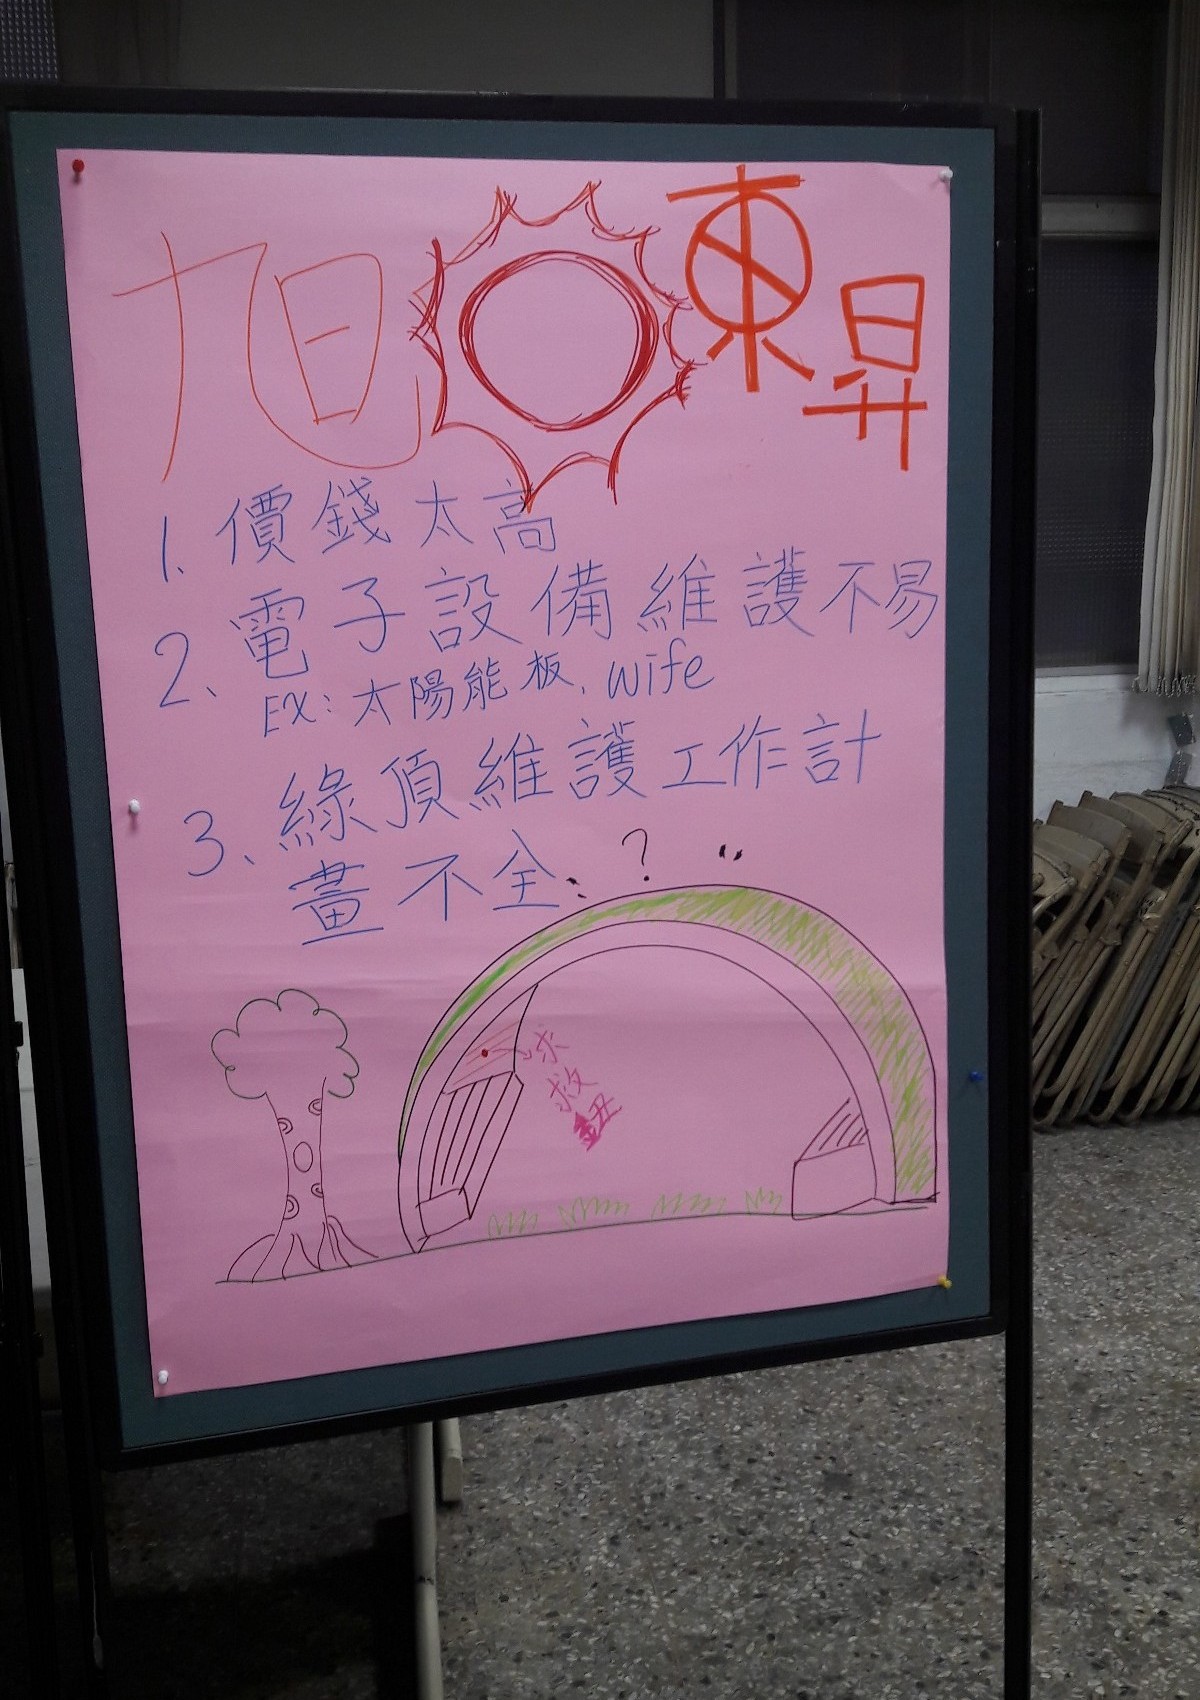 旭日東昇
1. 價錢太高
2、電子設備維護不易
EX: 太陽能板、wife
3、綠頂維護工作計
畫不全
?
求救鈕